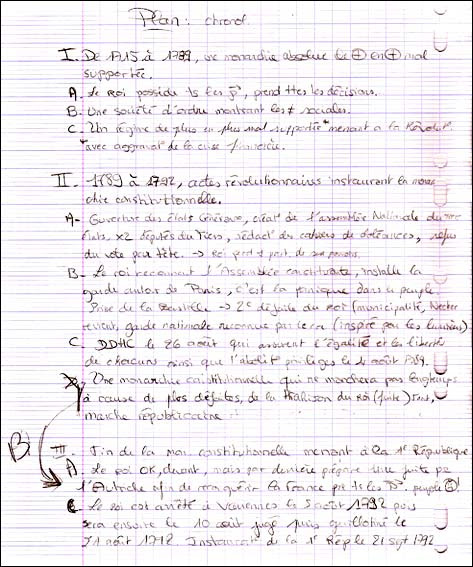 Plan : chronol.
I. De 1715 à 1789, une monarchie absolue de ⊕ en ⊕ mal
supportée.
A. Le Roi possède ts les p°, prend ttes les décisions.
B. Une société d'ordre montrant les ≠ sociales.
C. Un régime de plus en plus mal supporté* menant à la Révolut°
*avec aggravat° de la crise financière.
II. 1789 à 1792, actes révolutionnaires instaurant la monar
chie constitutionnelle.
A- Ouverture des états Généraux, créat° de l'assemblée Nationale du
états, x2 députés du Tiers, rédact° des cahiers de doléances, refus
du vote par tête. → Roi perd
B- Le roi reconnait l'Assemblée constituante, installe la
garde autour de Paris, c'est la panique dans le peuple.
Prise de la Bastille → 2e défaite du roi (municipalité, Necker
revient, garde nationale reconnue par le roi (inspiré par les lumières)
C. DDHC le 26 août qui assurent l'égalité et les libertés
de chacuns ainsi que l'abolit° privilèges le 4 août 1789.
Une monarchie constitutionnelle qui ne marchera pas longtemps
à cause de plrs défaites, de la trahison du Roi (fuite)
marche républicaine
B
III. Fin de la mon. constitutionnelle menant à la 1e République
A) Le roi OK, devant, mais par derrière prépare une fuite pr
l'Autriche afin de reconquérir la France
C Le roi est arrêté à Varennes le 5 août 1792 puis
sera ensuite le 10 août jugé puis guillotiné le
Instaurat° de la 1e Rép le 21 sept 1792